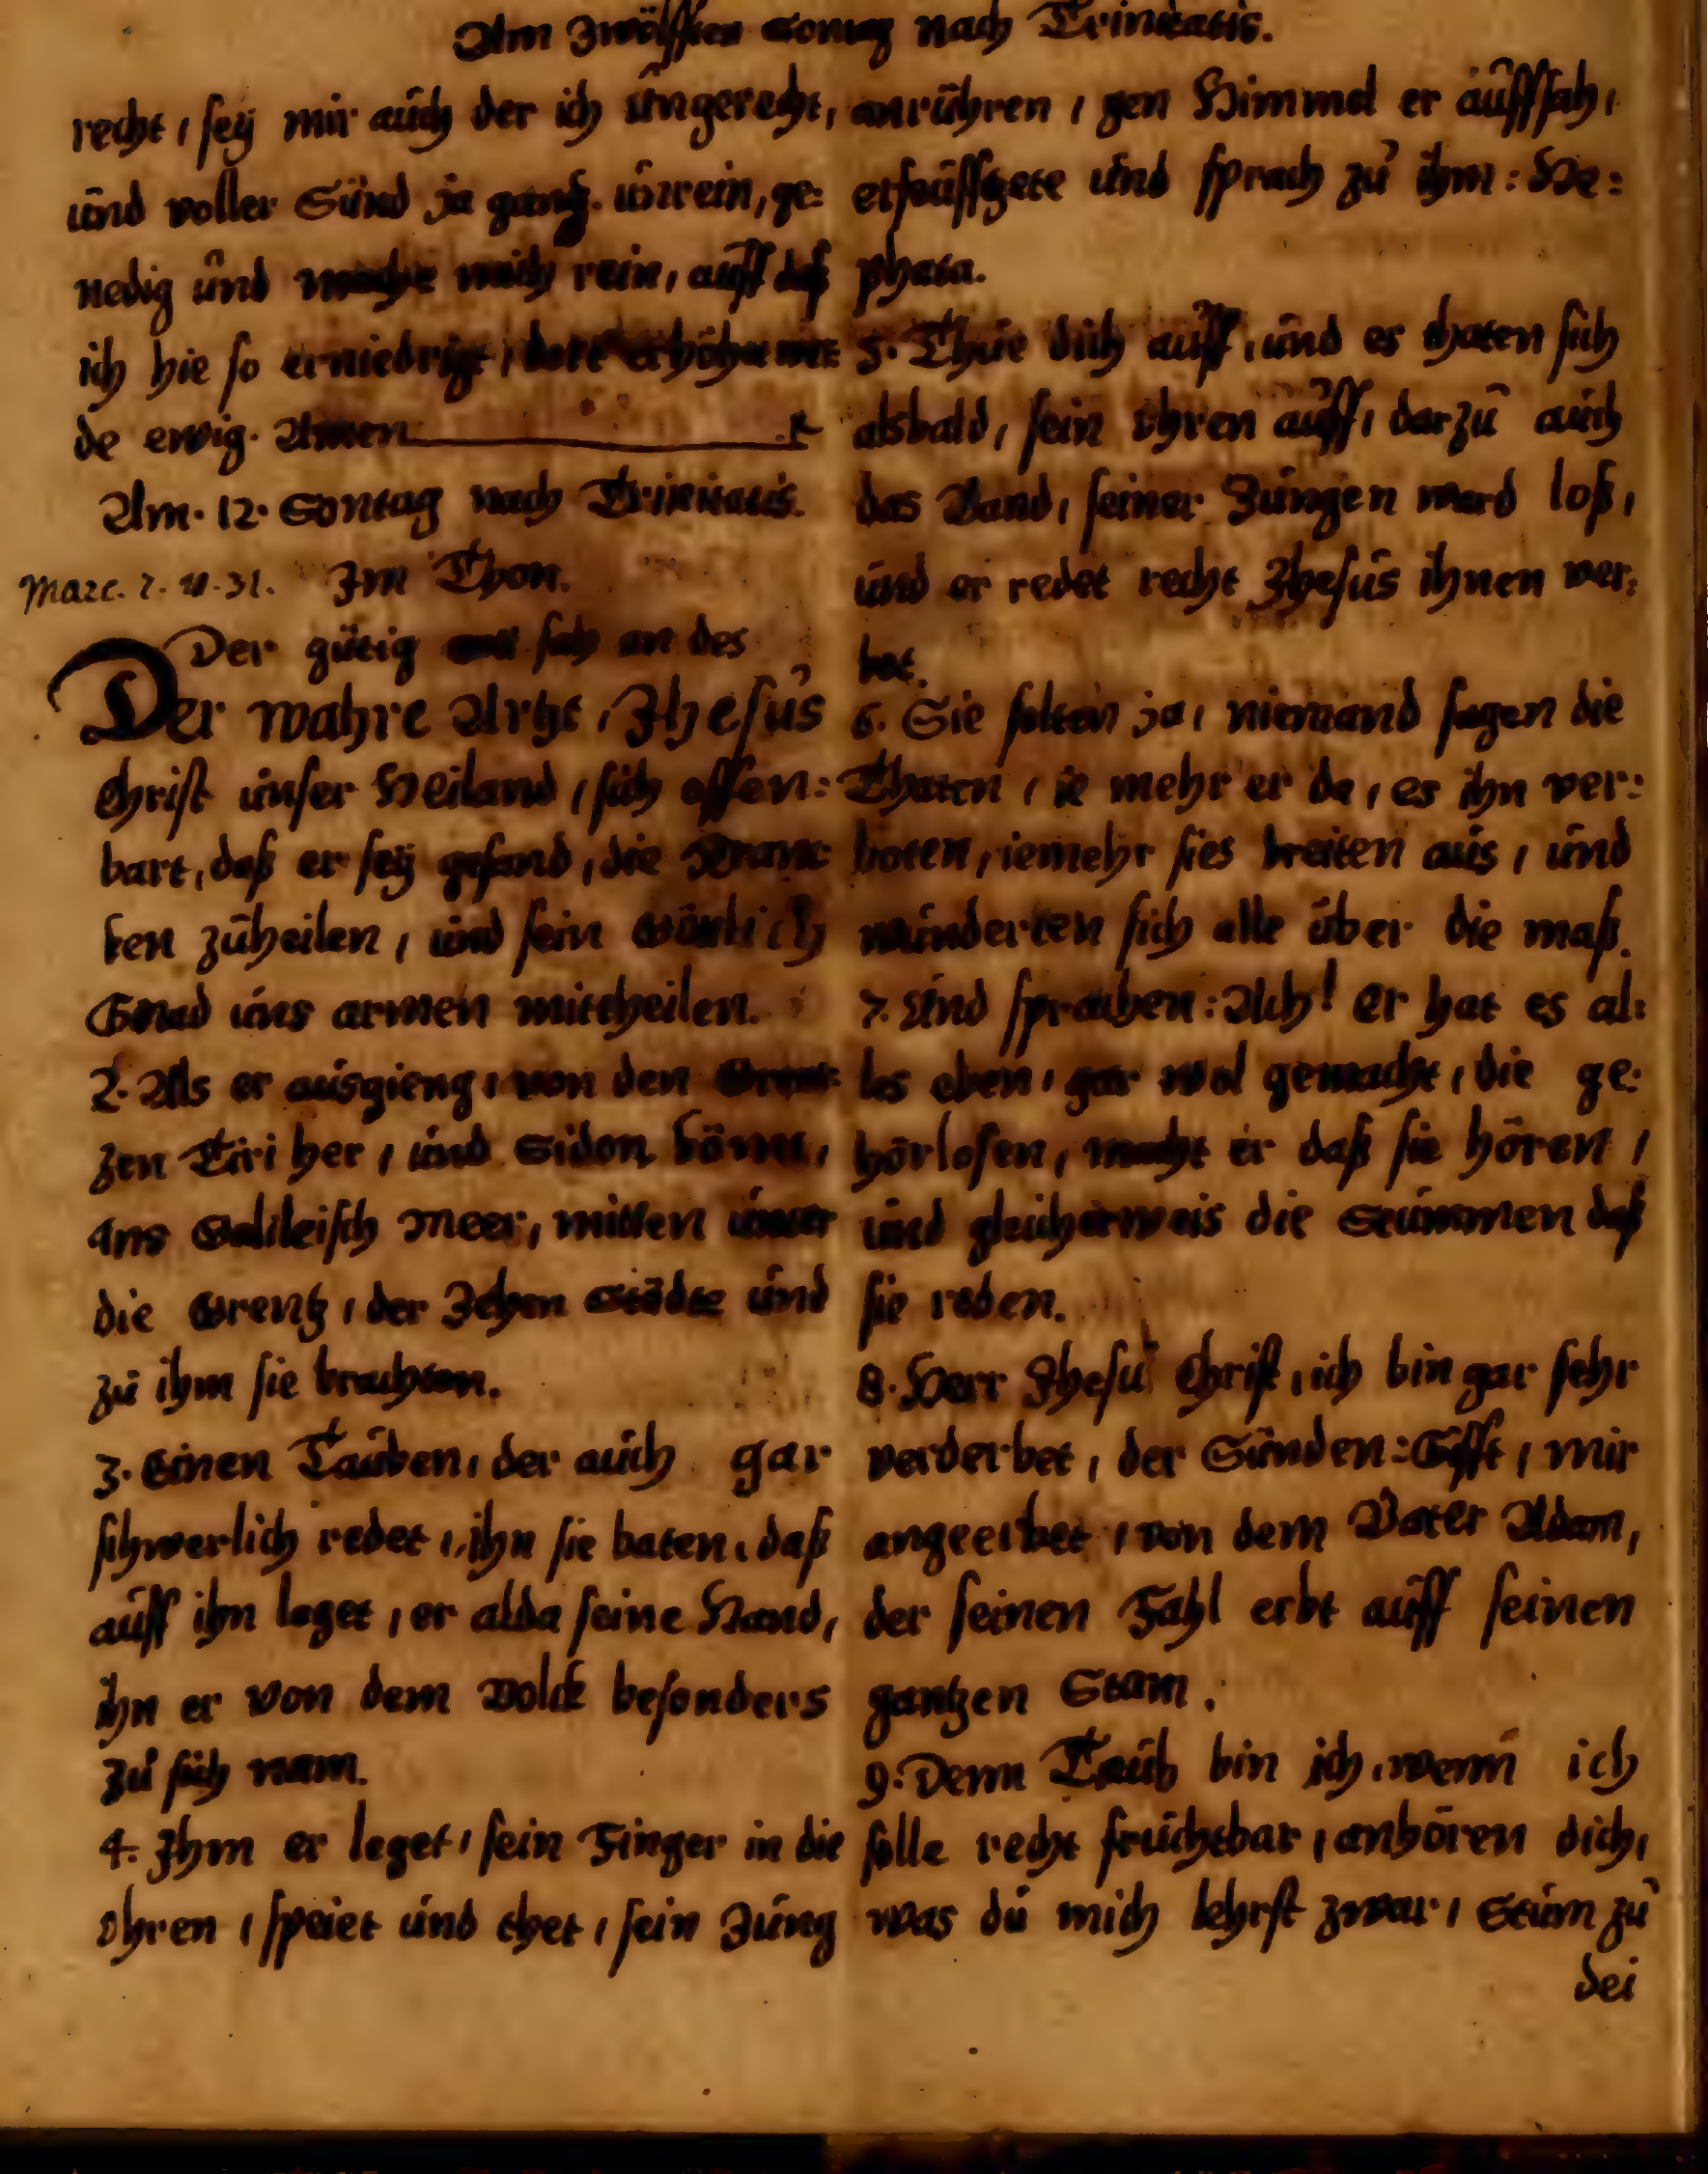 Am Zwölfften Sontag nach Trinitatis.
recht, seÿ mir auch der ich ungerecht,
und voller Sünd ja gantz unrein, ge:
nedig und mache mich rein, auff daß
ich hie so erniedrigt, dort erhöhe wer
de ewig. Amen
Am. 12. Sontag nach Trinitatis.
Marc. 7. v. 31. Im Thon.
Der gütig sah an des
Der wahre Artzt, Jhesus
Christ unser Heiland, sich offen:
bart, daß er seÿ gesand, die Kranc
ken zuheilen, und sein Göttlich
Gnad uns armen mittheilen.
2. Als er ausgieng, von den Grent
zen Tiri her, und Sidon kömt,
Ans Galileisch Meer, mitten unter
die Grentz, der Zehen Städte und
zu ihm sie brachten.
3. Einen Tauben, der auch gar
schwerlich redet, ihn sie baten, daß
auff ihn leget, er alda seine Hand,
ihn er von dem Volck besonders
zu sich nam.
4. Ihm er leget, sein Finger in die
Ohren, speiet und thet, sein Zung
anrühren, gen Himmel er auffsah,
erseuffzete und sprach zu ihm: He:
phata.
5. Thue dich auff, und es thaten sich
alsbald, sein Ohren auff, darzu auch
das Band, seiner Zungen ward loß,
und er redet recht Jhesus ihnen ver:
bot.
6. Sie solten ja, niemand sagen die
Thaten, ie mehr er da, es ihn ver:
boten, iemehr sies breiten aus, und
wunderten sich alle über die maß.
7. Und sprachen: Ach! er hat es al:
les eben, gar wol gemacht, die ge:
hörlosen, macht er daß sie hören,
und gleicherweis die Stummen daß
sie reden.
8. Herr Jhesu Christ, ich bin gar sehr
verderbet, der Sünden: Gifft, mir
angeerbet, von dem Vater Adam,
der seinen Fahl erbt auff seinen
gantzen Stam.
9. Denn Taub bin ich, wenn ich
solle recht fruchtbar, anhören dich,
was du mich lehrst zwar, Stum zu
dei